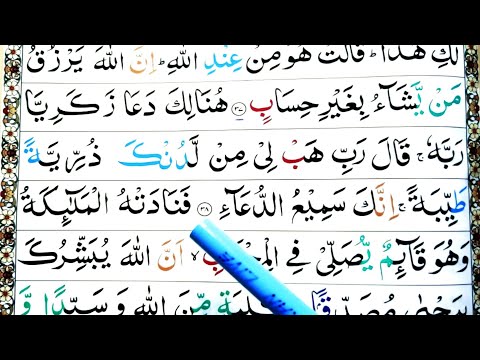 لَكِ هٰذَا ؕ قَالَتْ هُوَ مِنْ عِنْدِ اللّٰهِ ؕ اِنَّ اللّٰهَ يَرْزُقُ
مَنْ يَّشَآءُ بِغَيْرِ حِسَابٍ ۝۳۷ هُنَالِكَ دَعَا زَكَرِيَّا
رَبَّهٗ ۚ قَالَ رَبِّ هَبْ لِىْ مِنْ لَّدُنْكَ ذُرِّيَّةً
طَيِّبَةً ۚ اِنَّكَ سَمِيْعُ الدُّعَآءِ ۝۳۸ فَنَادَتْهُ الْمَلٰٓئِكَةُ
وَهُوَ قَآئِمٌ يُّصَلِّىْ فِى ۙ اَنَّ اللّٰهَ يُبَشِّرُكَ
مِّنَ اللّٰهِ وَ سَيِّدًا وَّ